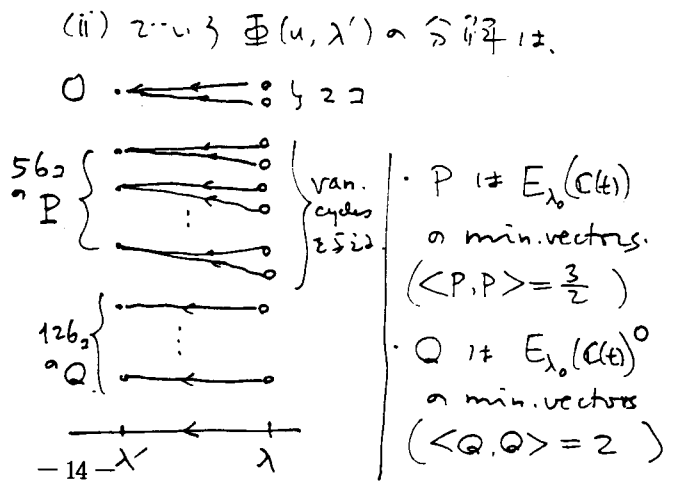 (ii) ここでいう Φ(u, λ') の分解は、
O } 2コ
56コ
の P
van.
cycles
を与える
126コ
の Q
λ' λ
・ P は E_{λ_0}(ℂ(t))
の min.vectors.
(<P,P> = 3/2)
・ Q は E_{λ_0}(ℂ(t))^0
の min.vectors
(<Q,Q> = 2)
— 14 —